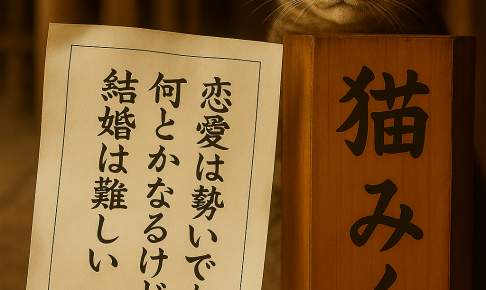 恋愛は勢いで
何とかなるけど
結婚は難しい
猫み